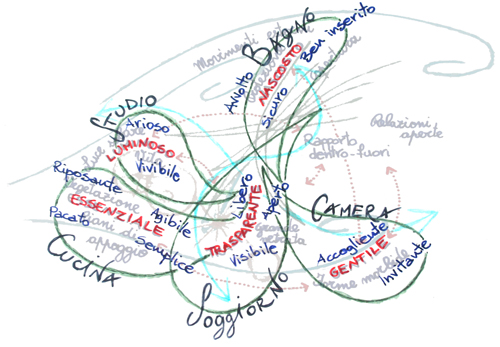 BAGNO
Avvolto
NASCOSTO
Sicuro
Ben inserito
Movimenti
STUDIO
Arioso
LUMINOSO
Vivibile
Rapporto
dentro-fuori
Relazioni
aperte
Riposante
ESSENZIALE
Agibile
Pacato
Semplice
piani di
appoggio
CUCINA
Libero
TRASPARENTE
Aperto
Visibile
Grande
SOGGIORNO
CAMERA
Accogliente
GENTILE
Invitante
Forme morbide